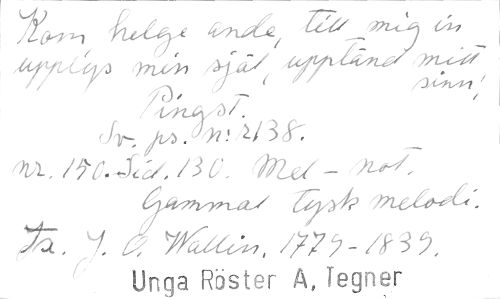 Kom helge ande, till mig in
upplys min själ, upptänd mitt
sinn!
Pingst.
Sv. ps. n: 2138.
nr. 150. Sid. 130. Mel – not.
Gammal tysk melodi.
Tx. J. O. Wallin. 1779-1839.
Unga Röster A. Tegner